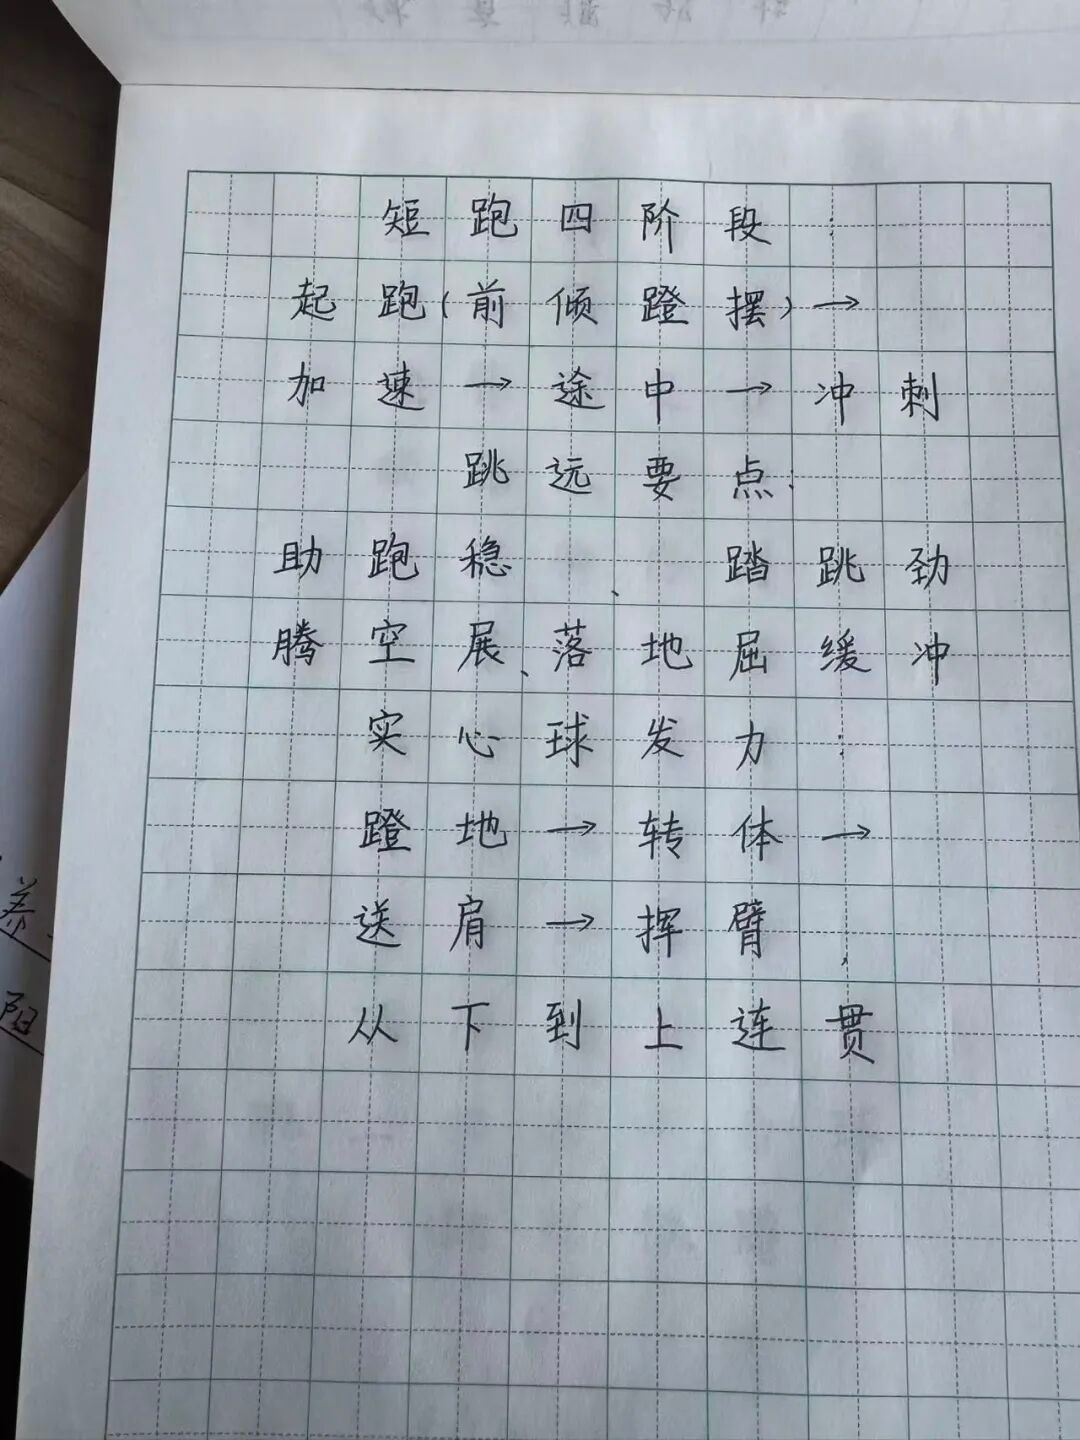 短跑四阶段:
起跑(前倾蹬摆)→
加速→途中→冲刺
跳远要点:
助跑稳、踏跳劲
腾空展、落地屈缓冲
实心球发力:
蹬地→转体→
送肩→挥臂,
从下到上连贯